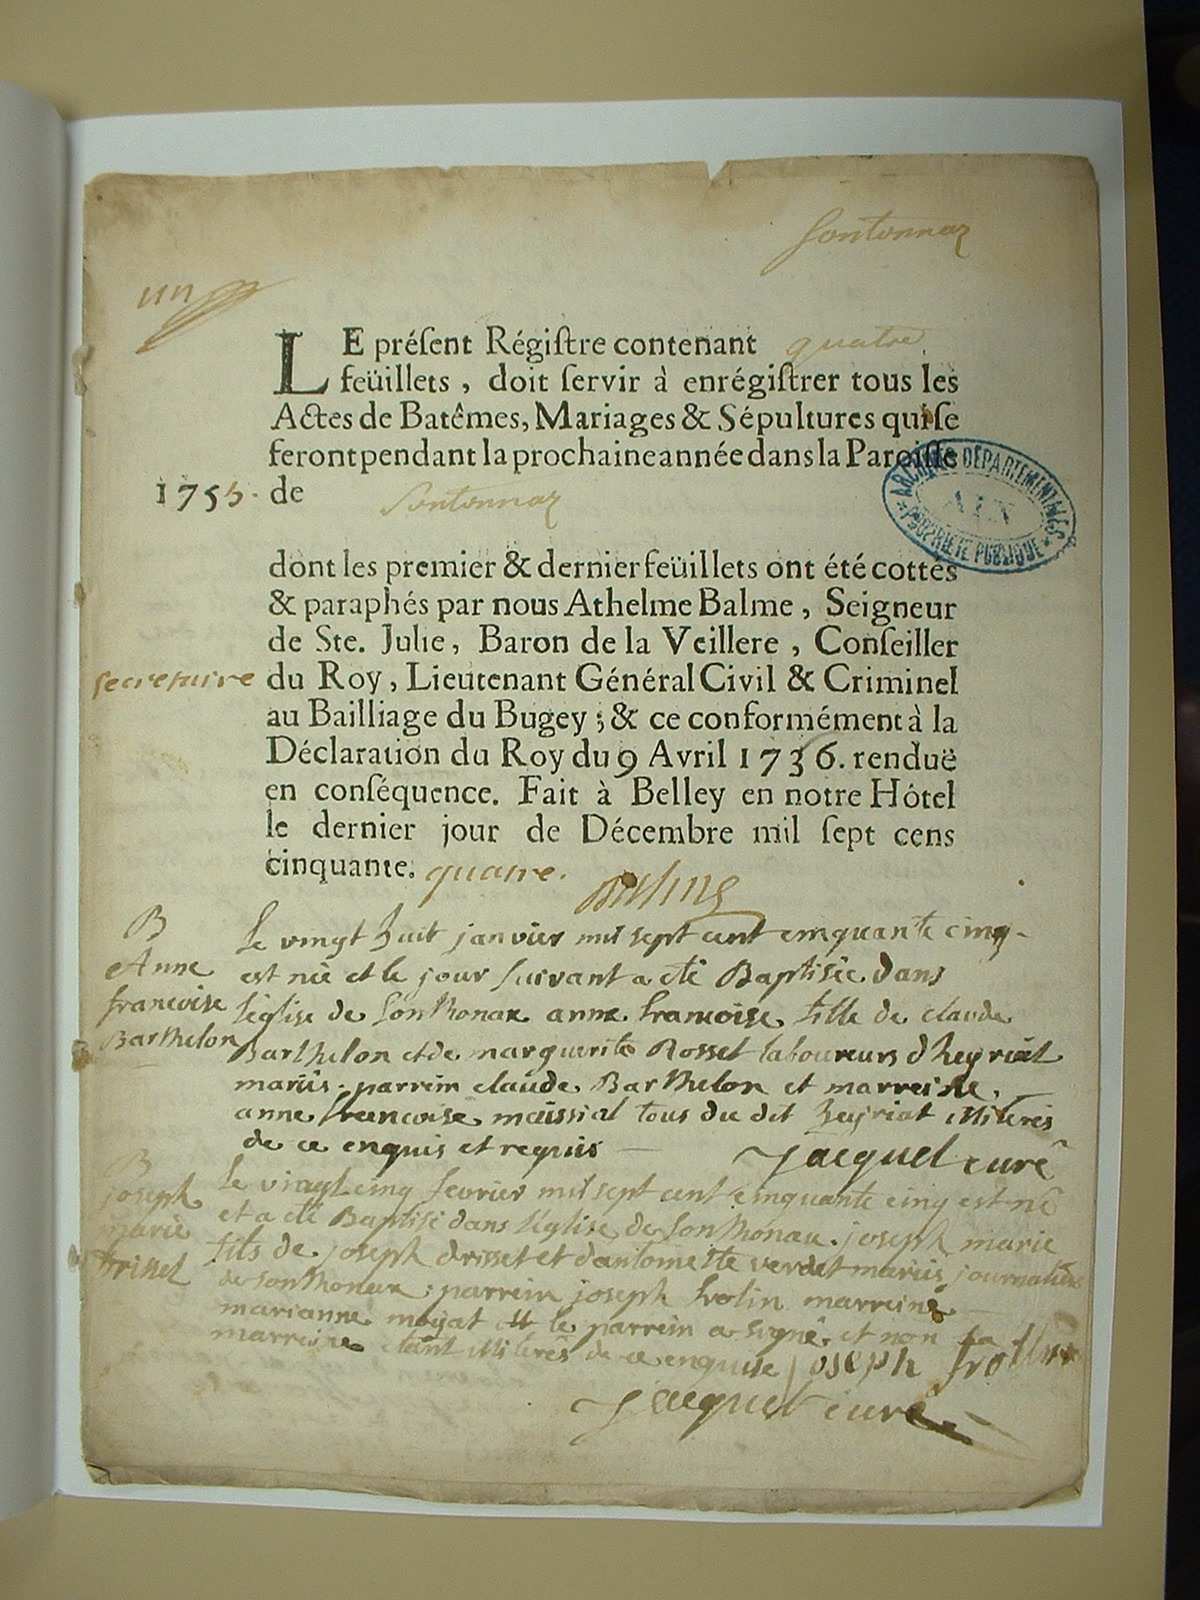 Sontonnaz
un
LE préſent Régiſtre contenant quatre
feüillets, doit ſervir à enrégiſtrer tous les
Actes de Batêmes, Mariages & Sépultures qui ſe
feront pendant la prochaine année dans la Paroiſſe
1755. de Sontonnaz
ARCHIVES DÉPARTEMENTALES
AIN
PROPRIÉTÉ PUBLIQUE
dont les premier & dernier feüillets ont été cottés
& paraphés par nous Athelme Balme, Seigneur
de Ste. Julie, Baron de la Veillere, Conſeiller
secretaire du Roy, Lieutenant Général Civil & Criminel
au Bailliage du Bugey; & ce conformément à la
Déclaration du Roy du 9 Avril 1736. renduë
en conſéquence. Fait à Belley en notre Hôtel
le dernier jour de Décembre mil ſept cens
cinquante. quatre.
B
Anne
francoise
Barthelon
Le vingt huit janvier mil sept cent cinquante cinq
est née et le jour suivant a eté Baptisée dans
l'église de Sonthonax anne francoise fille de claude
Barthelon et de marguerite Rosset laboureurs d'heyriat
mariés. parrein claude Barthelon et marreine
anne francoise maissiat tous du dit heyriat illiterés
de ce enquis et requis
Jacquet curé
B
joseph
marie
drisset
Le vingt cinq fevrier mil sept cent cinquante cinq est né
et a eté Baptisé dans l'église de Sonthonax. joseph marie
fils de joseph drisset et d'antoinette verdet mariés journaliers
de Sonthonax; parrein joseph frolin marreine
marianne moyat le parrein a signé et non la
marreine etant illiterés de ce enquise joseph
Jacquet curé.